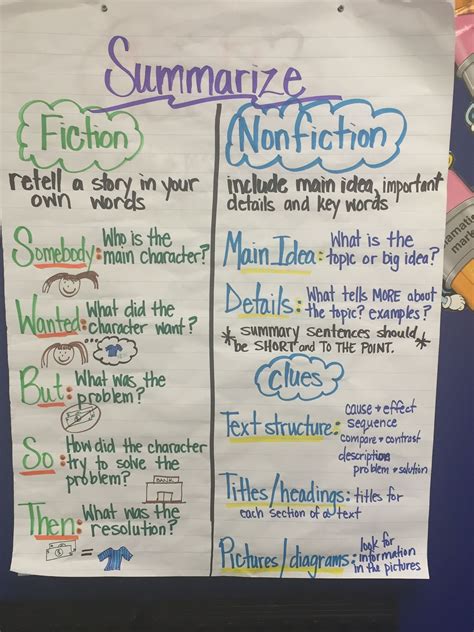 Summarize
Fiction
retell a story in your
own words
Somebody: Who is the
main character?
Wanted: What did the
character want?
But: What was the
problem?
So: How did the character
try to solve the
problem?
BANK
Then: What was the
resolution?
=
Nonfiction
include main idea, important
details and key words
Main Idea: What is the
topic or big idea?
Details: What tells MORE about
the topic? examples?
* summary sentences should *
be SHORT and TO THE POINT.
Clues
Text structure: cause → effect
sequence
compare + contrast
description
problem + solution
Titles/headings: titles for
each section of a text
Pictures/diagrams: look for
information
in the pictures